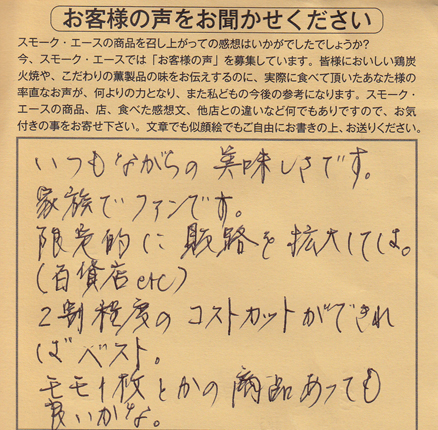 お客様の声をお聞かせください
スモーク・エースの商品を召し上がっての感想はいかがでしたでしょうか?
今、スモーク・エースでは「お客様の声」を募集しています。皆様においしい鶏炭
火焼や、こだわりの薫製品の味をお伝えするのに、実際に食べて頂いたあなた様の
率直なお声が、何よりの力となり、また私どもの今後の参考になります。スモーク・
エースの商品、店、食べた感想文、他店との違いなど何でもありですので、お気
付きの事をお寄せ下さい。文章でも似顔絵でもご自由にお書きの上、お送りください。
いつもながらの美味しさです。
家族でファンです。
限定的に販路を拡大しては。
(百貨店etc)
2割程度のコストカットができれ
ばベスト。
モモ1枚とかの商品あっても
良いかな。